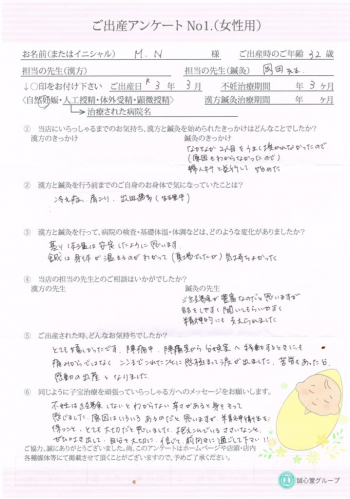 ご出産アンケート No1.(女性用)
お名前(またはイニシャル) M.N 様 ご出産時のご年齢 32 歳
担当の先生(漢方) 担当の先生(鍼灸) 岡田先生
↓〇印をお付け下さい ご出産日 3 年 3 月 不妊治療期間 年 3ヶ月
(自然妊娠・人工授精・体外受精・顕微授精) 漢方鍼灸治療期間 年 ヶ月
→治療された病院名
① 当店にいらっしゃるまでのお気持ち、漢方と鍼灸を始められたきっかけはどんなことでしたか?
漢方のきっかけ 鍼灸のきっかけ
なかなか2人目をうまく授かれなかったので
(原因もわからなかったので)
始めた
② 漢方と鍼灸を行う前までのご自身のお身体で気になっていたことは?
冷え性、肩こり、
③ 漢方と鍼灸を行って、病院の検査・基礎体温・体調などは、どのような変化がありましたか?
ように思います
鍼は身体が温まるのがわかって 気持ちよかった
④ 当店の担当の先生とのご相談はいかがでしたか?
漢方の先生 鍼灸の先生
豊富なのだと思いますが
話をしやすく聞いてもらいやすく
精神的にも支えられました
⑤ ご出産された時、どんなお気持ちでしたか?
とても嬉しかったです。陣痛中、陣痛室から分娩室へ移動するときにも
痛みからではなくここまでこれたことに感極まって涙が出ました。苦労もあった分、
感動の出産となりました
⑥ 同じように子宝治療を頑張っていらっしゃる方へのメッセージをお願いします。
不妊は経験しないとわからない辛さがあると身をもって
感じました。原因はいろいろあるのだと思いますが精神的情緒を
保つこと、とても大切だと思いました。抱えこんでいるささいなこと、
ぜひはき出して、自分を大切に、信じて前向きに過ごして下さい!!
ご協力、誠にありがとうございました。尚、このアンケートはホームページや店頭・店内
各種媒体等にて掲載させて頂くことがございますので、予めご了承ください。
誠心堂グループ